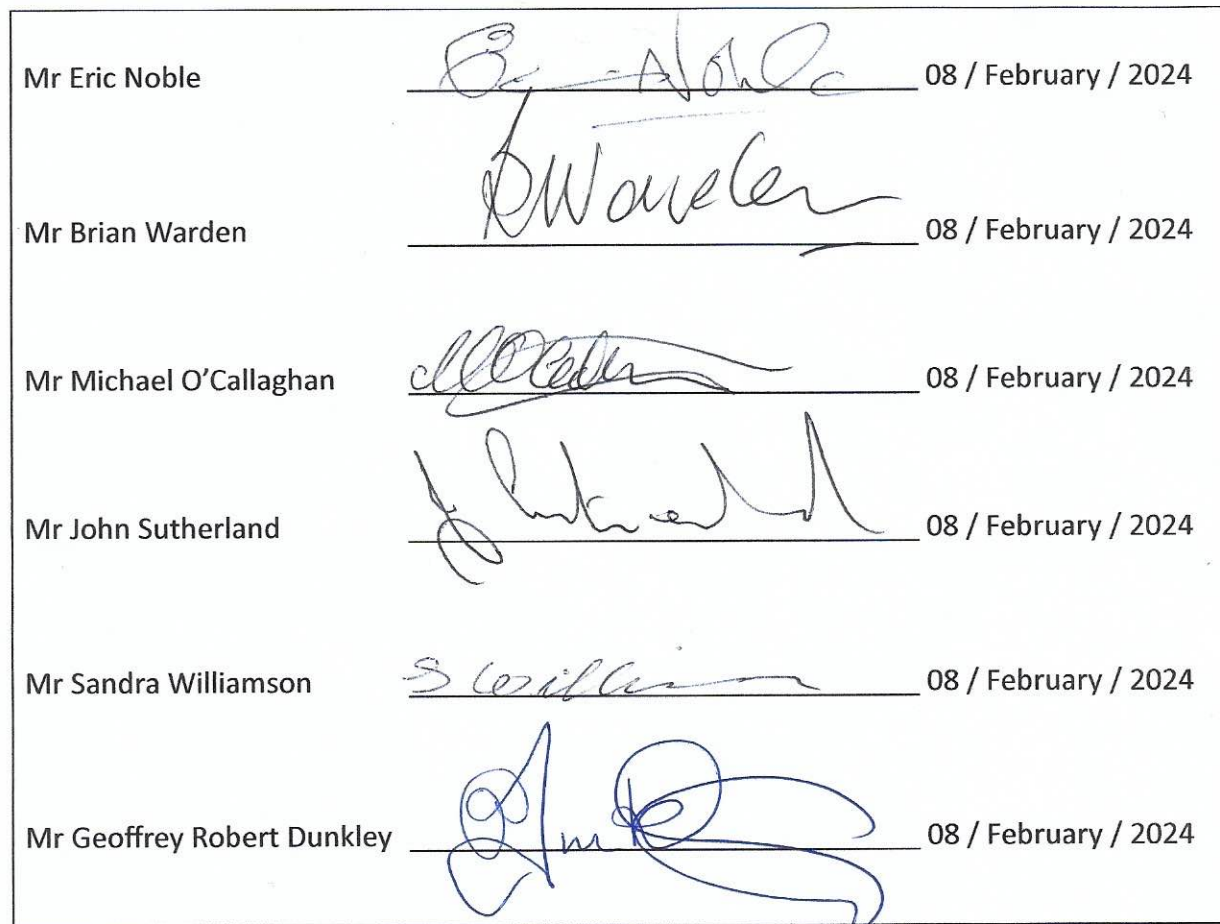 Mr Eric Noble 08 / February / 2024
Mr Brian Warden 08 / February / 2024
Mr Michael O’Callaghan 08 / February / 2024
Mr John Sutherland 08 / February / 2024
Mr Sandra Williamson 08 / February / 2024
Mr Geoffrey Robert Dunkley 08 / February / 2024